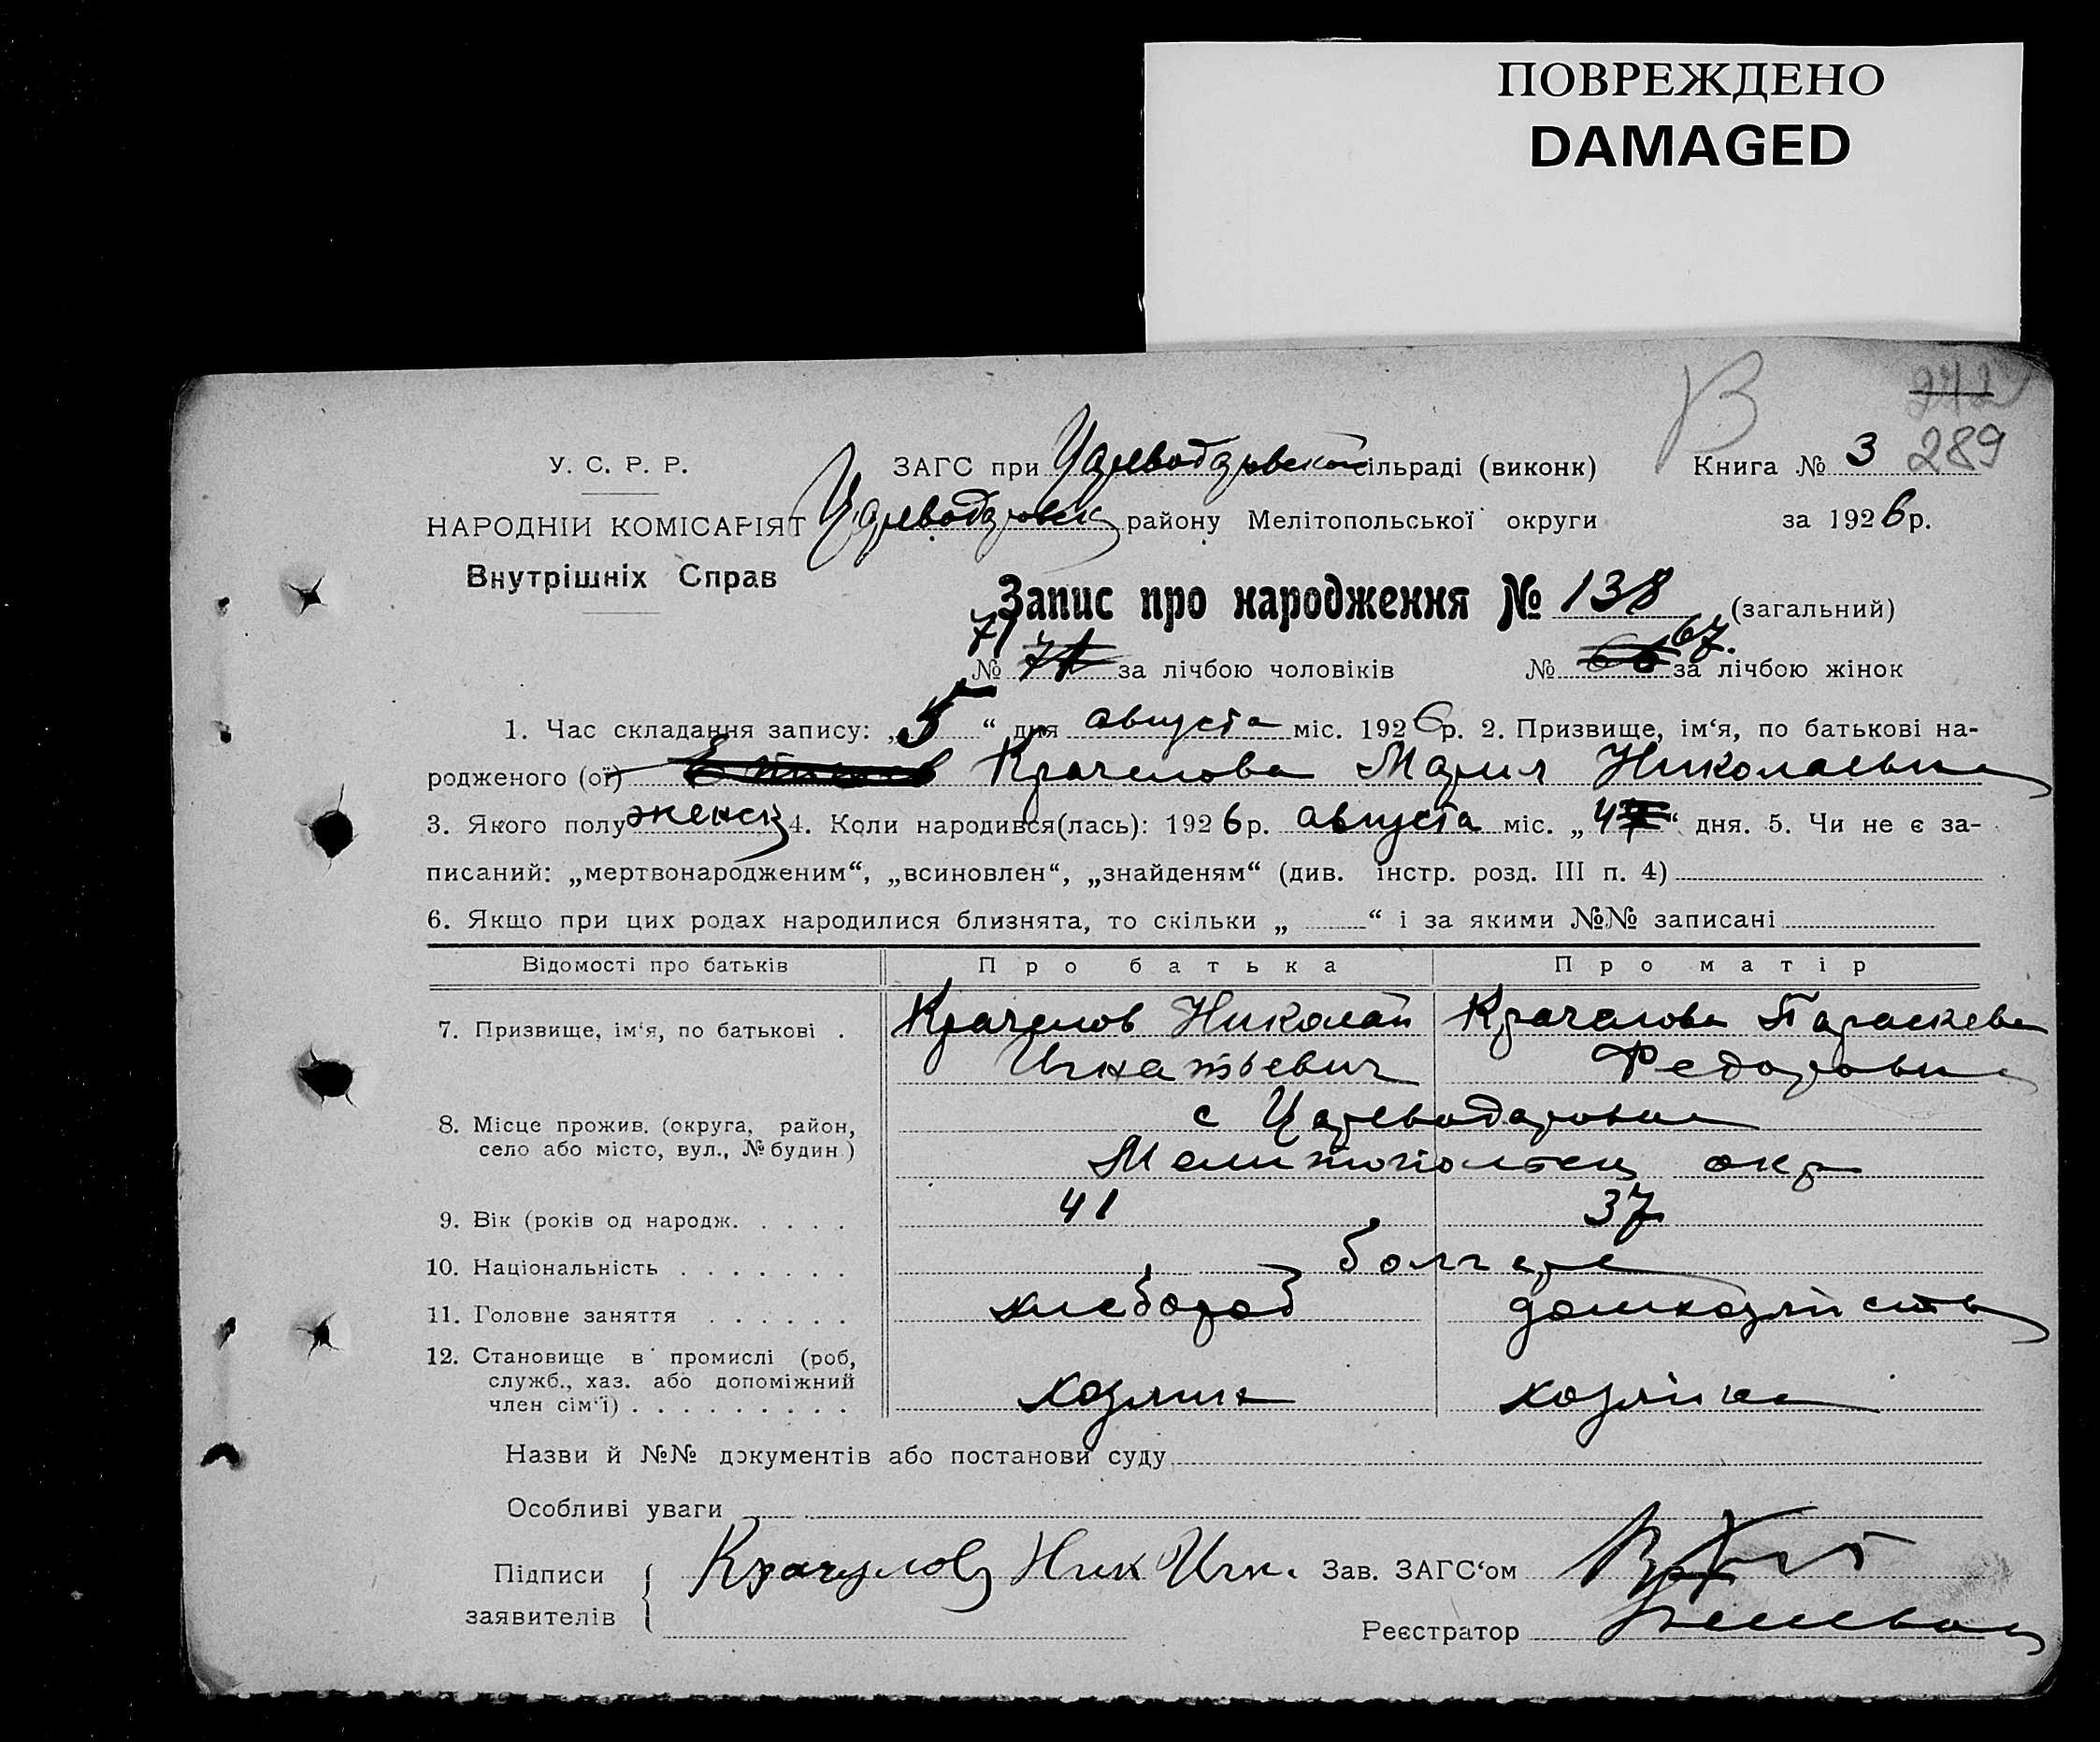 ПОВРЕЖДЕНО
DAMAGED
В 272
289
У. С. Р. Р.
ЗАГС при Цареводаровской сільраді (виконк) Книга № 3
НАРОДНІЙ КОМІСАРІЯТ Цареводаровск району Мелітопольської округи за 1926 р.
Внутрішніх Справ
Запис про народження № 138 (загальний)
71 67.
№ 71 за лічбою чоловіків № 66 за лічбою жінок
1. Час складання запису: „5“ дня августа міс. 1926 р. 2. Призвище, ім‘я, по батькові на-
родженого (ої) Крачелова Мария Николаевна
3. Якого полу женск 4. Коли народився(лась): 1926 р. августа міс. „4“ дня. 5. Чи не є за-
писаний: „мертвонародженим“, „всиновлен“, „знайденям“ (див. інстр. розд. III п. 4)
6. Якщо при цих родах народилися близнята, то скільки „ “ і за якими №№ записані
Відомості про батьків Про батька Про матір
7. Призвище, ім‘я, по батькові . Крачелов Николай Крачелова Параскева
Игнатьевич Федоровна
8. Місце прожив. (округа, район, с Цареводаровка
село або місто, вул., № будин ) Мелитопольск окр
9. Вік (років од народж. . . . . 41 37
10. Національність . . . . . . . болгаре
11. Головне заняття . . . . . . хлебороб домхозяйств
12. Становище в промислі (роб,
служб., хаз. або допоміжний
член сім‘ї) . . . . . . . . . хозяин хозяйка
Назви й №№ документів або постанови суду
Особливі уваги
Підписи Крачулов Ник Игн. Зав. ЗАГС‘ом
заявителів
Реєстратор